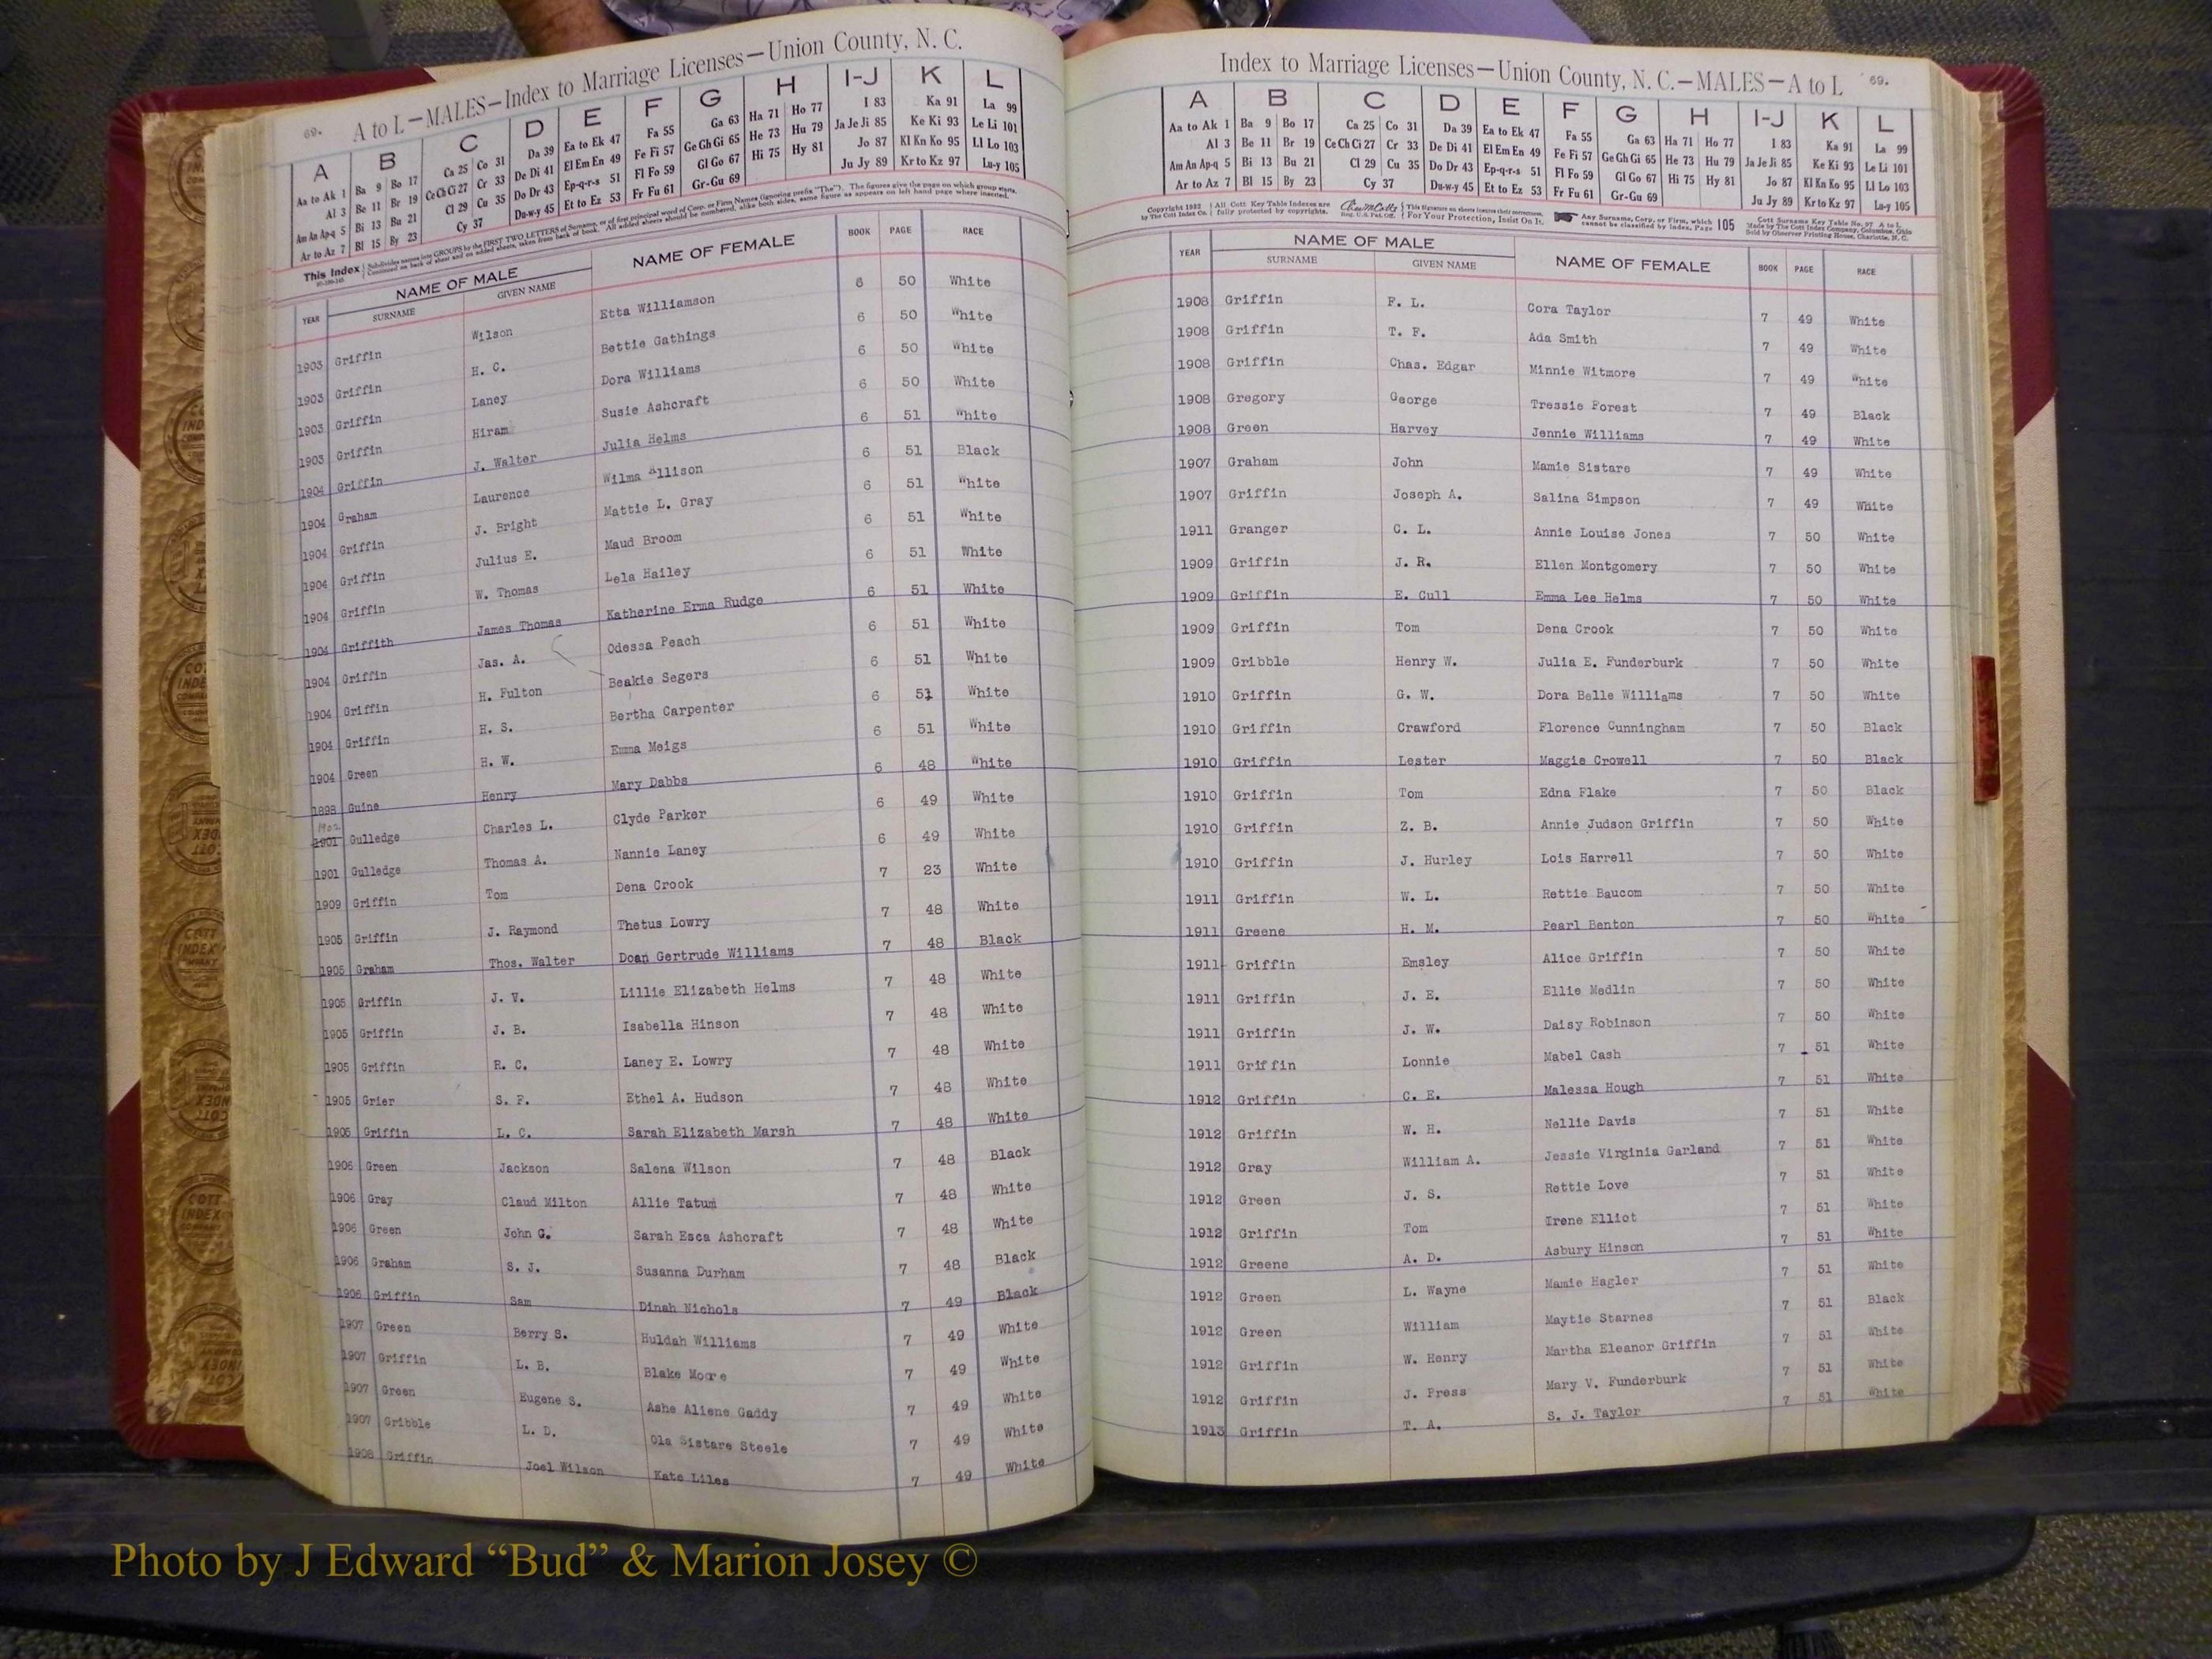 69. A to L—MALES—Index to Marriage Licenses—Union County, N. C.
A B C D E F G H I-J K L
Aa to Ak 1 Ba 9 Bo 17 Ca 25 Co 31 Da 39 Ea to Ek 47 Fa 55 Ga 63 Ha 71 Ho 77 I 83 Ka 91 La 99
Al 3 Be 11 Br 19 Ce Ch Ci 27 Cr 33 De Di 41 El Em En 49 Fe Fi 57 Ge Gh Gi 65 He 73 Hu 79 Ja Je Ji 85 Ke Ki 93 Le Li 101
Am An Ap-q 5 Bi 13 Bu 21 Cl 29 Cu 35 Do Dr 43 Ep-q-r-s 51 Fl Fo 59 Gl Go 67 Hi 75 Hy 81 Jo 87 Kl Kn Ko 95 Ll Lo 103
Ar to Az 7 Bl 15 By 23 Cy 37 Du-w-y 45 Et to Ez 53 Fr Fu 61 Gr-Gu 69 Ju Jy 89 Kr to Kz 97 Lu-y 105
This Index Subdivides names into GROUPS by the FIRST TWO LETTERS of Surname, or of first principal word of Corp. or Firm Names (ignoring prefix "The"). The figures give the page on which group starts.
Continued on back of sheet and on added sheets, taken from back of book. All added sheets should be numbered, alike both sides, same figure as appears on left hand page where inserted.
YEAR NAME OF MALE NAME OF FEMALE BOOK PAGE RACE
SURNAME GIVEN NAME
1903 Griffin Wilson Etta Williamson 6 50 White
1903 Griffin H. C. Bettie Gathings 6 50 White
1903 Griffin Laney Dora Williams 6 50 White
1903 Griffin Hiram Susie Ashcraft 6 50 White
1904 Griffin J. Walter Julia Helms 6 51 White
1904 Graham Laurence Wilma Allison 6 51 Black
1904 Griffin J. Bright Mattie L. Gray 6 51 White
1904 Griffin Julius E. Maud Broom 6 51 White
1904 Griffin W. Thomas Lela Hailey 6 51 White
1904 Griffith James Thomas Katherine Erma Rudge 6 51 White
1904 Griffin Jas. A. Odessa Peach 6 51 White
1904 Griffin H. Fulton Beakie Segers 6 51 White
1904 Griffin H. S. Bertha Carpenter 6 51 White
1904 Green H. W. Emma Meigs 6 51 White
1898 Guine Henry Mary Dabbs 6 48 White
1902
1901 Gulledge Charles L. Clyde Parker 6 49 White
1901 Gulledge Thomas A. Nannie Laney 6 49 White
1909 Griffin Tom Dena Crook 7 23 White
1905 Griffin J. Raymond Thetus Lowry 7 48 White
1905 Graham Thos. Walter Doan Gertrude Williams 7 48 Black
1905 Griffin J. V. Lillie Elizabeth Helms 7 48 White
1905 Griffin J. B. Isabella Hinson 7 48 White
1905 Griffin R. C. Laney E. Lowry 7 48 White
1905 Grier S. F. Ethel A. Hudson 7 48 White
1906 Griffin L. C. Sarah Elizabeth Marsh 7 48 White
1906 Green Jackson Salena Wilson 7 48 Black
1906 Gray Claud Milton Allie Tatum 7 48 White
1906 Green John G. Sarah Esca Ashcraft 7 48 White
1906 Graham S. J. Susanna Durham 7 48 Black
1906 Griffin Sam Dinah Nichols 7 49 Black
1907 Green Berry S. Huldah Williams 7 49 White
1907 Griffin L. B. Blake Moore 7 49 White
1907 Green Eugene S. Ashe Aliene Gaddy 7 49 White
1907 Gribble L. D. Ola Sistare Steele 7 49 White
1908 Griffin Joel Wilson Kate Liles 7 49 White
Index to Marriage Licenses—Union County, N. C.—MALES—A to L 69.
A B C D E F G H I-J K L
Aa to Ak 1 Ba 9 Bo 17 Ca 25 Co 31 Da 39 Ea to Ek 47 Fa 55 Ga 63 Ha 71 Ho 77 I 83 Ka 91 La 99
Al 3 Be 11 Br 19 Ce Ch Ci 27 Cr 33 De Di 41 El Em En 49 Fe Fi 57 Ge Gh Gi 65 He 73 Hu 79 Ja Je Ji 85 Ke Ki 93 Le Li 101
Am An Ap-q 5 Bi 13 Bu 21 Cl 29 Cu 35 Do Dr 43 Ep-q-r-s 51 Fl Fo 59 Gl Go 67 Hi 75 Hy 81 Jo 87 Kl Kn Ko 95 Ll Lo 103
Ar to Az 7 Bl 15 By 23 Cy 37 Du-w-y 45 Et to Ez 53 Fr Fu 61 Gr-Gu 69 Ju Jy 89 Kr to Kz 97 Lu-y 105
Copyright 1932 All Cott Key Table Indexes are This signature on sheets insures their correctness. Any Surname, Corp. or Firm, which 105 Cott Surname Key Table No. 97 A to L
by The Cott Index Co. fully protected by copyrights. Reg. U.S. Pat. Off. For Your Protection, Insist On It. cannot be classified by Index, Page Made by The Cott Index Company, Columbus, Ohio
Sold by Observer Printing House, Charlotte, N. C.
YEAR NAME OF MALE NAME OF FEMALE BOOK PAGE RACE
SURNAME GIVEN NAME
1908 Griffin F. L. Cora Taylor 7 49 White
1908 Griffin T. F. Ada Smith 7 49 White
1908 Griffin Chas. Edgar Minnie Witmore 7 49 White
1908 Gregory George Tressie Forest 7 49 Black
1908 Green Harvey Jennie Williams 7 49 White
1907 Graham John Mamie Sistare 7 49 White
1907 Griffin Joseph A. Salina Simpson 7 49 White
1911 Granger C. L. Annie Louise Jones 7 50 White
1909 Griffin J. R. Ellen Montgomery 7 50 White
1909 Griffin E. Cull Emma Lee Helms 7 50 White
1909 Griffin Tom Dena Crook 7 50 White
1909 Gribble Henry W. Julia E. Funderburk 7 50 White
1910 Griffin G. W. Dora Belle Williams 7 50 White
1910 Griffin Crawford Florence Cunningham 7 50 Black
1910 Griffin Lester Maggie Crowell 7 50 Black
1910 Griffin Tom Edna Flake 7 50 Black
1910 Griffin Z. B. Annie Judson Griffin 7 50 White
1910 Griffin J. Hurley Lois Harrell 7 50 White
1911 Griffin W. L. Rettie Baucom 7 50 White
1911 Greene H. M. Pearl Benton 7 50 White
1911 Griffin Emsley Alice Griffin 7 50 White
1911 Griffin J. E. Ellie Medlin 7 50 White
1911 Griffin J. W. Daisy Robinson 7 50 White
1911 Griffin Lonnie Mabel Cash 7 51 White
1912 Griffin C. E. Malessa Hough 7 51 White
1912 Griffin W. H. Nellie Davis 7 51 White
1912 Gray William A. Jessie Virginia Garland 7 51 White
1912 Green J. S. Rettie Love 7 51 White
1912 Griffin Tom Irene Elliot 7 51 White
1912 Greene A. D. Asbury Hinson 7 51 White
1912 Green L. Wayne Mamie Hagler 7 51 White
1912 Green William Maytie Starnes 7 51 Black
1912 Griffin W. Henry Martha Eleanor Griffin 7 51 White
1912 Griffin J. Press Mary V. Funderburk 7 51 White
1913 Griffin T. A. S. J. Taylor 7 51 White
Photo by J Edward “Bud” & Marion Josey ©